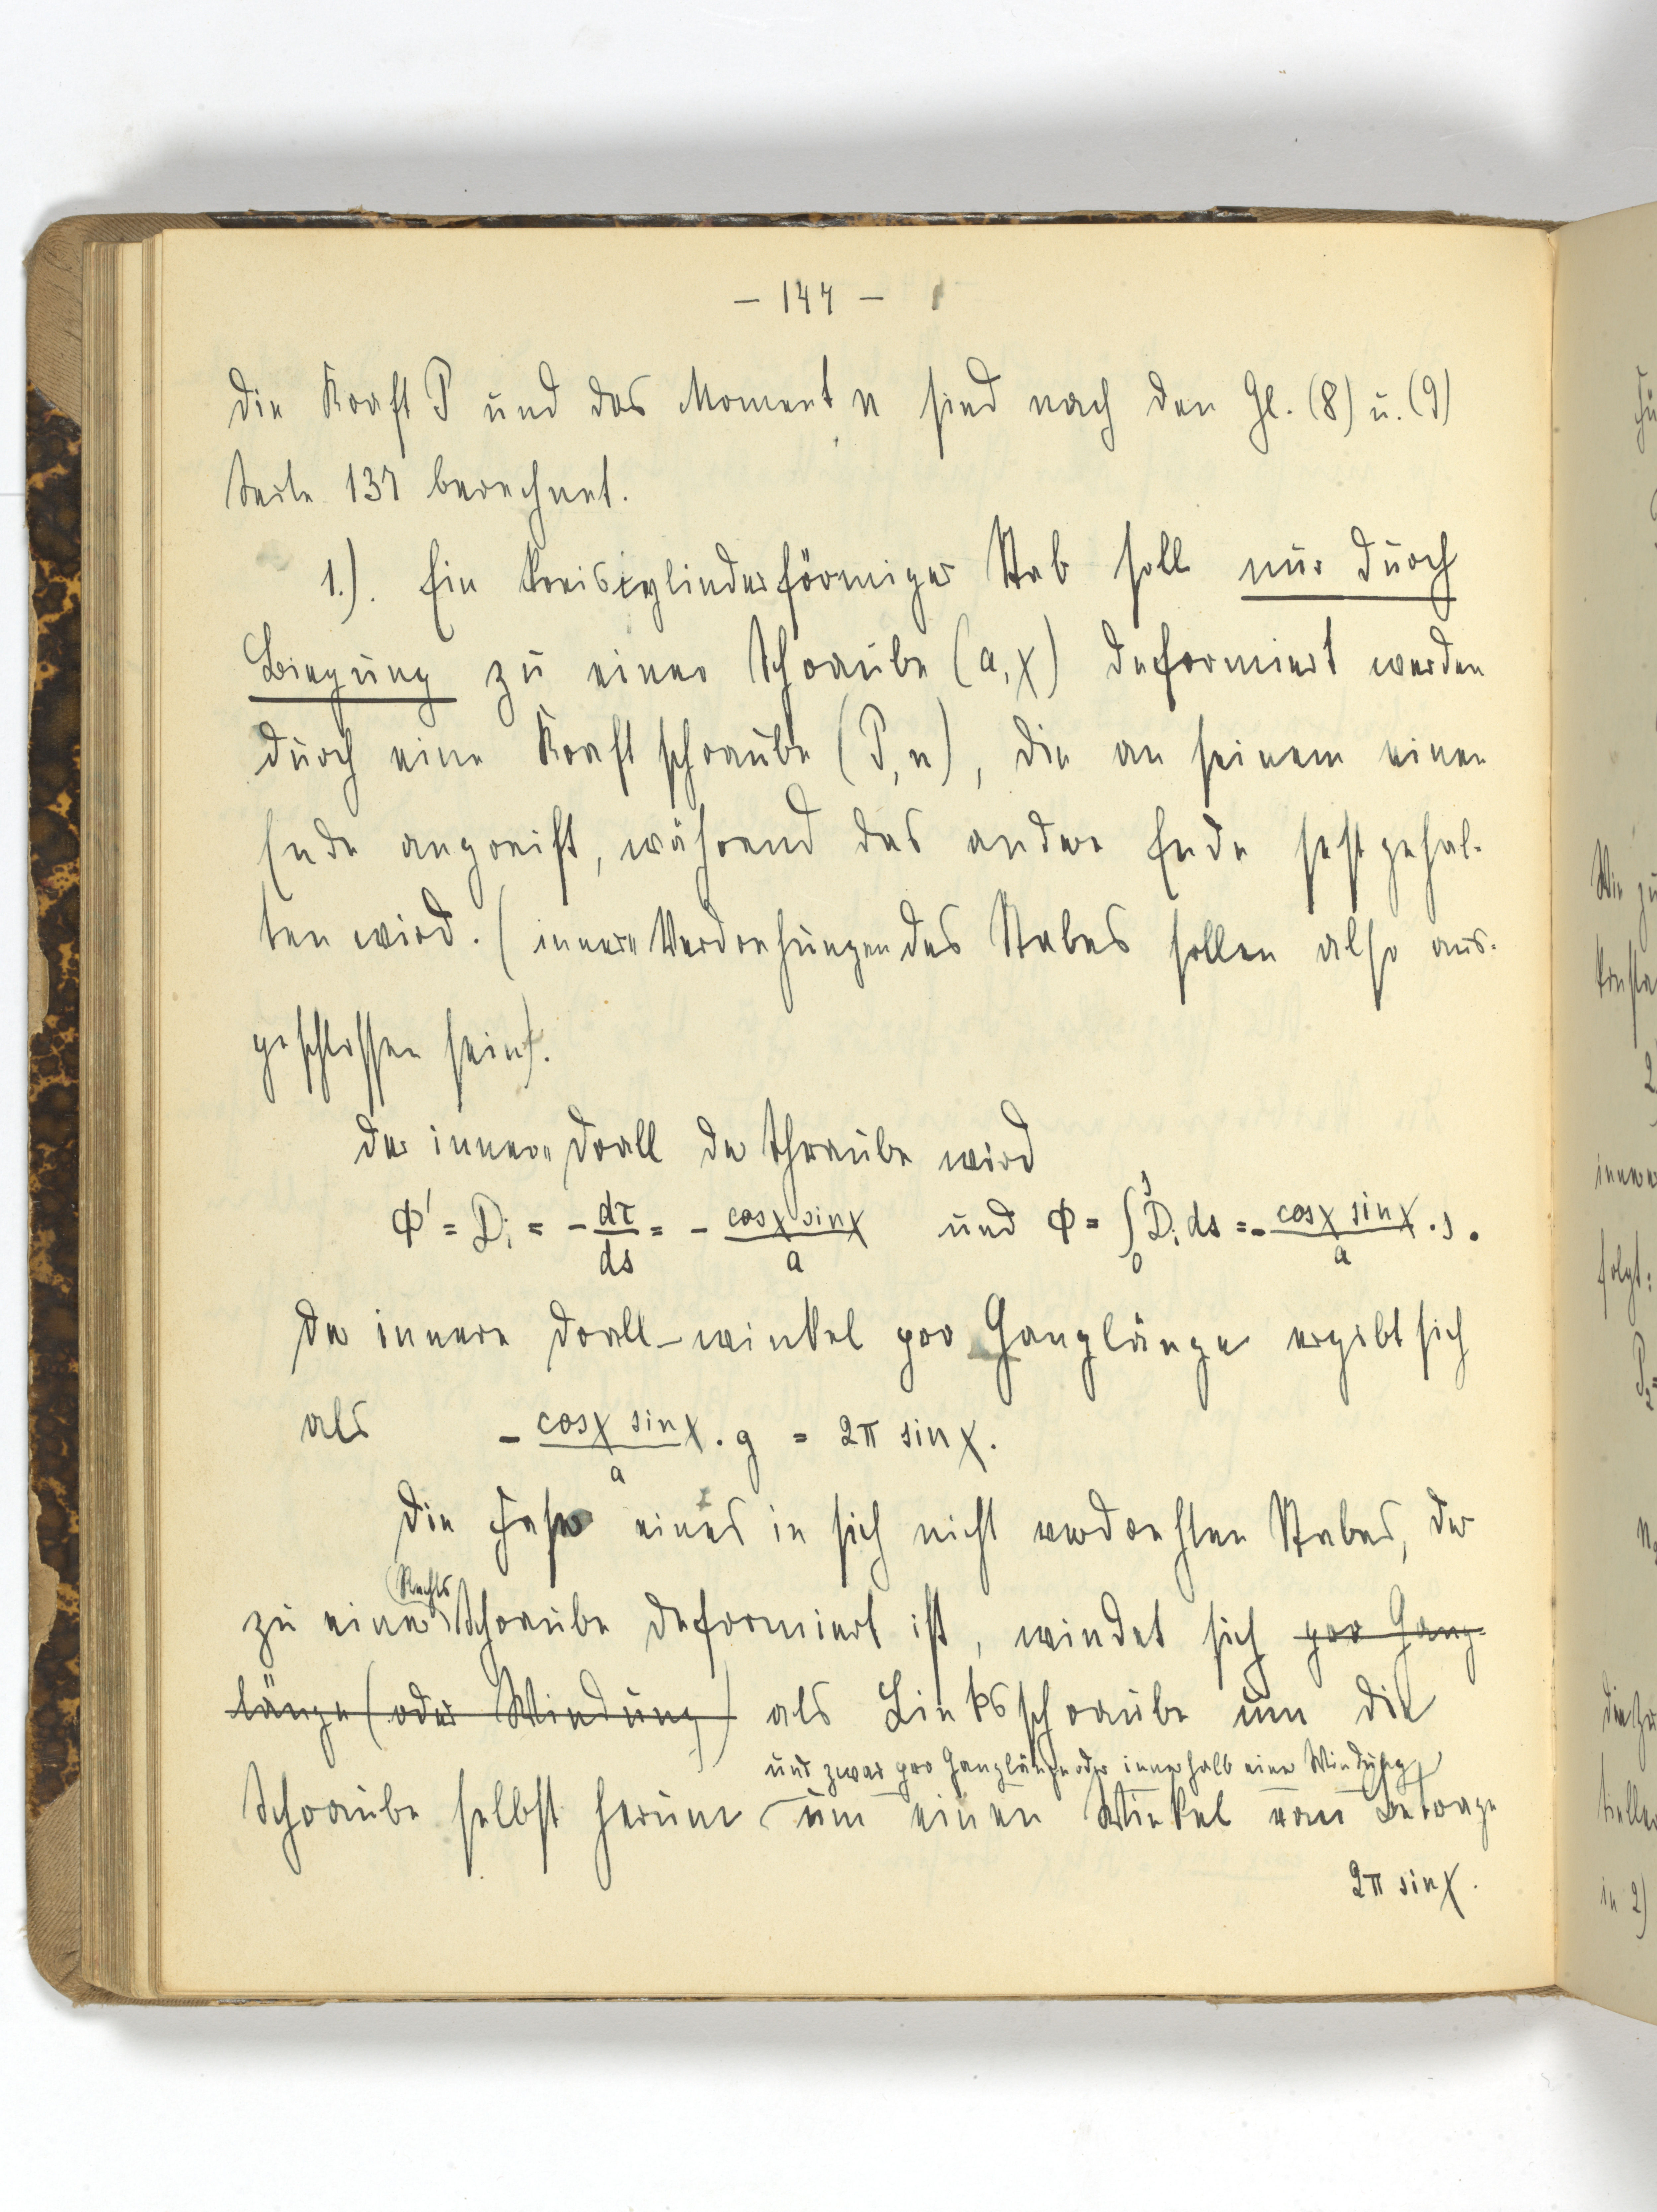 – 144 –
Die Kraft P und das Moment n sind nach den Gl. (8) u. (9)
Seite 137 berechnet.
1.). Ein kreiszylinderförmiger Stab soll nur durch
Biegung zu einer Schraube (a, χ) deformiert werden
durch eine Kraftschraube (P, n), die an seinem einen
Ende angreift, während das andere Ende festgehal-
ten wird. (innere Verdrehungen des Stabes sollen also aus-
geschlossen sein).
Der innere Drall der Schraube wird
Φ' = Di = - dτ/ds = - cosχ sinχ/a und Φ = ∫₀ˢ Di ds = - cosχ sinχ/a . s .
Der innere Drall-winkel pro Ganglänge ergibt sich
als - cosχ sinχ/a . g = 2π sinχ.
Die Faser eines in sich nicht verdrehten Stabes, der
Rechts
zu einer Schraube deformiert ist, windet sich pro Gang-
länge (oder Windung) als Linksschraube um die
und zwar pro Ganglänge oder innerhalb einer Windung
Schraube selbst herum um einen Winkel vom Betrage
2π sinχ.